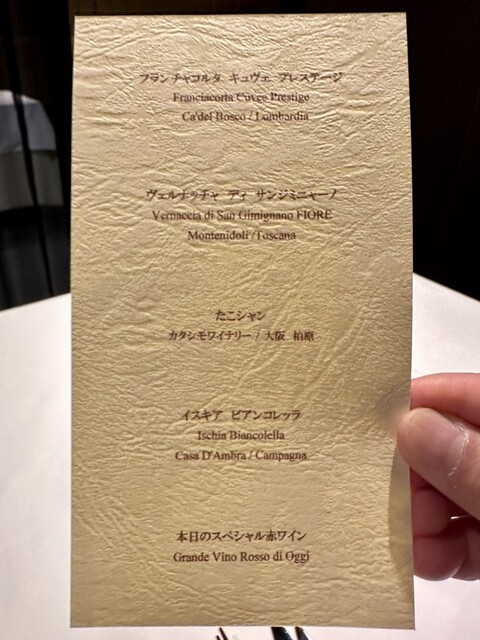 フランチャコルタ キュヴェ プレステージ
Franciacorta Cuvée Prestige
Ca'del Bosco / Lombardia
ヴェルナッチャ ディ サンジミニャーノ
Vernaccia di San Gimignano FIORE
Montenidoli /Toscana
たこシャン
カタシモワイナリー / 大阪 柏原
イスキア ビアンコレッラ
Ischia Biancolella
Casa D'Ambra / Campagna
本日のスペシャル赤ワイン
Grande Vino Rosso di Oggi